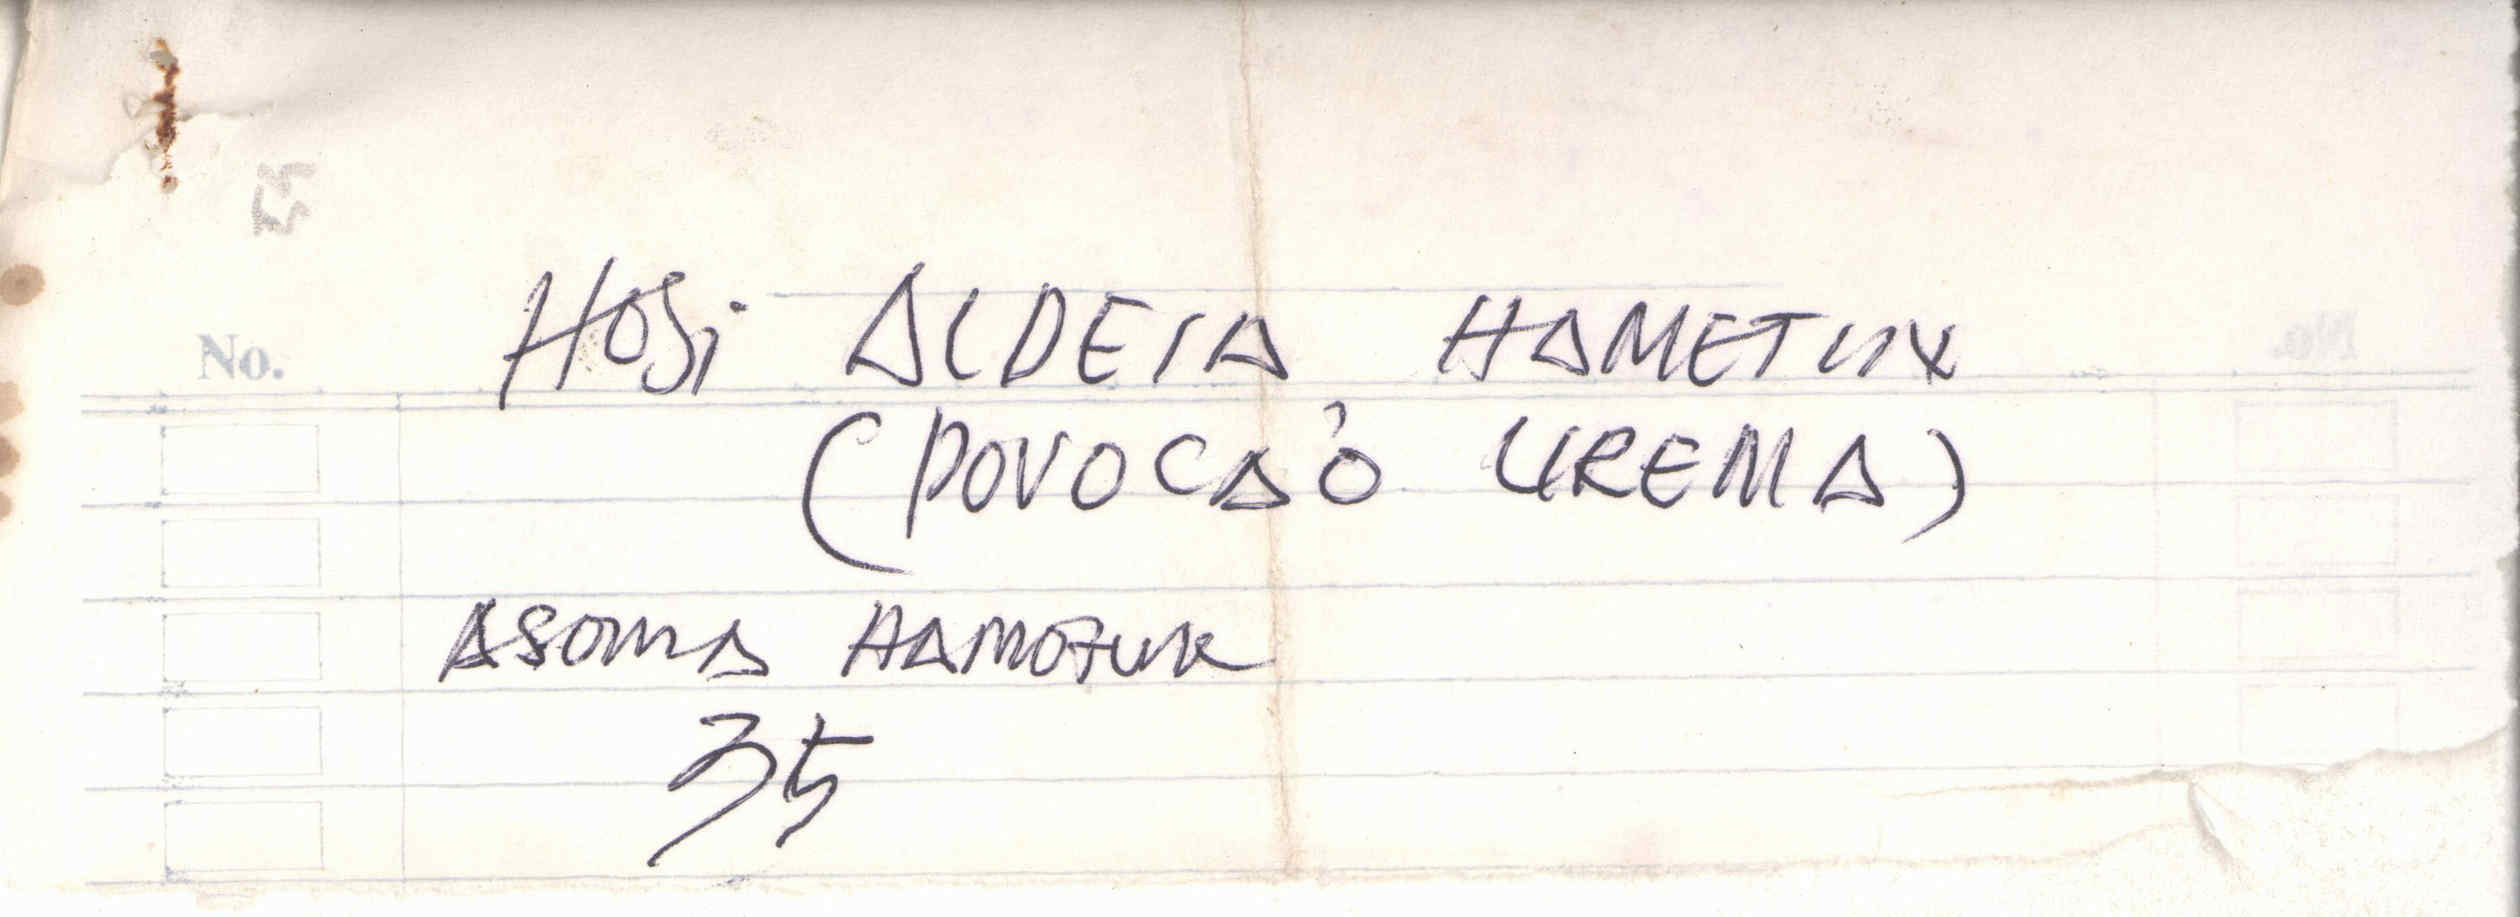 No.
HOSi ALDEIA HAMETUX
(POVOCAÓ UREMA)
ASOMA HAMOTUK
35